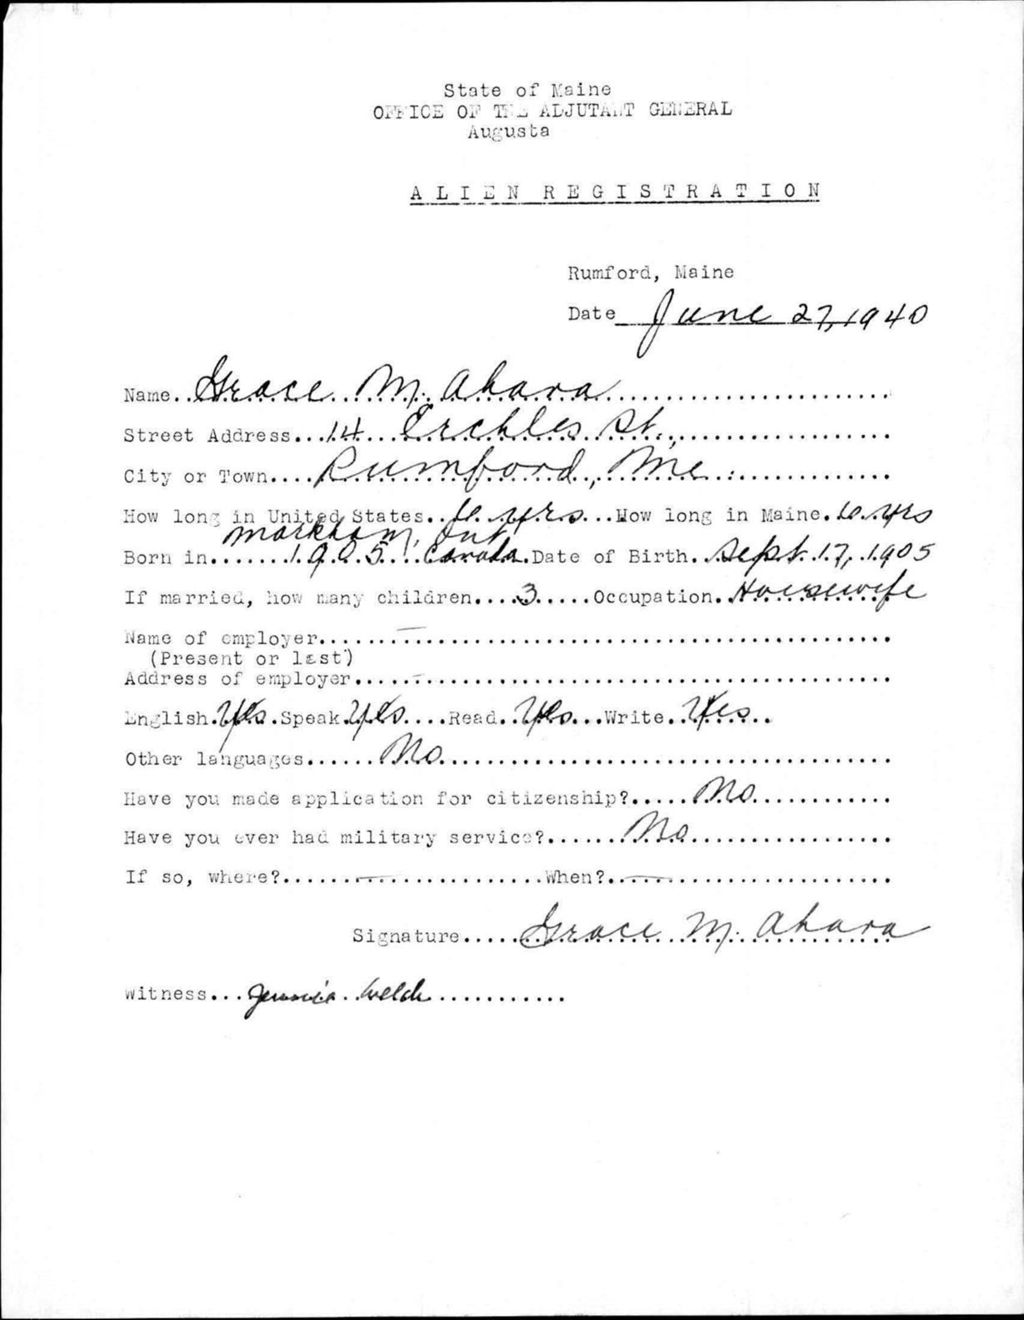 State of Maine
OFFICE OF THE ADJUTANT GENERAL
Augusta
ALIEN REGISTRATION
Rumford, Maine
Date June 27, 1940
Name.. Grace M. Ahara
Street Address... 14 Erchles St.,
City or Town.... Rumford, Me.
How long in United States.. 10 yrs...How long in Maine. 10 yrs
Markham, Ont
Born in....... 1905. Canada.Date of Birth. Sept. 17, 1905
If married, how many children.... 3.....Occupation. Housewife
Name of employer.... —
(Present or last)
Address of employer..... -
English. Yes.Speak. Yes....Read.. Yes...Write.. Yes..
Other languages...... No.
Have you made application for citizenship?..... No.
Have you ever had military service?....... No.
If so, where?...... — .When?.. —
Signature..... Grace M. Ahara
Witness... Welch